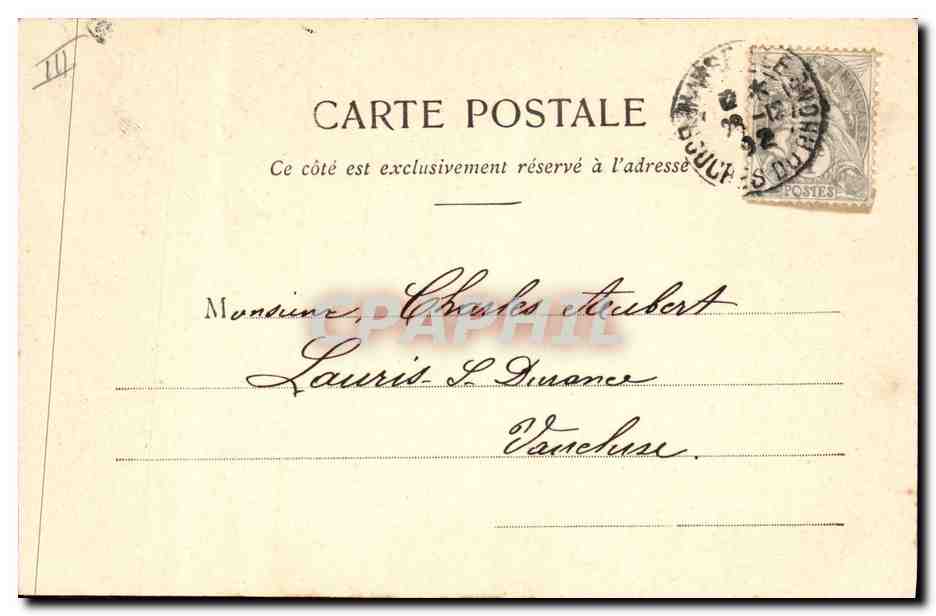 III
CARTE POSTALE
Ce côté est exclusivement réservé à l'adresse
MARSEILLE
12
29
-12
02
BOUCHES DU RHONE
POSTES
Monsieur, Charles Aubert
Lauris- S- Durance
Vaucluse.
CPAPHIL